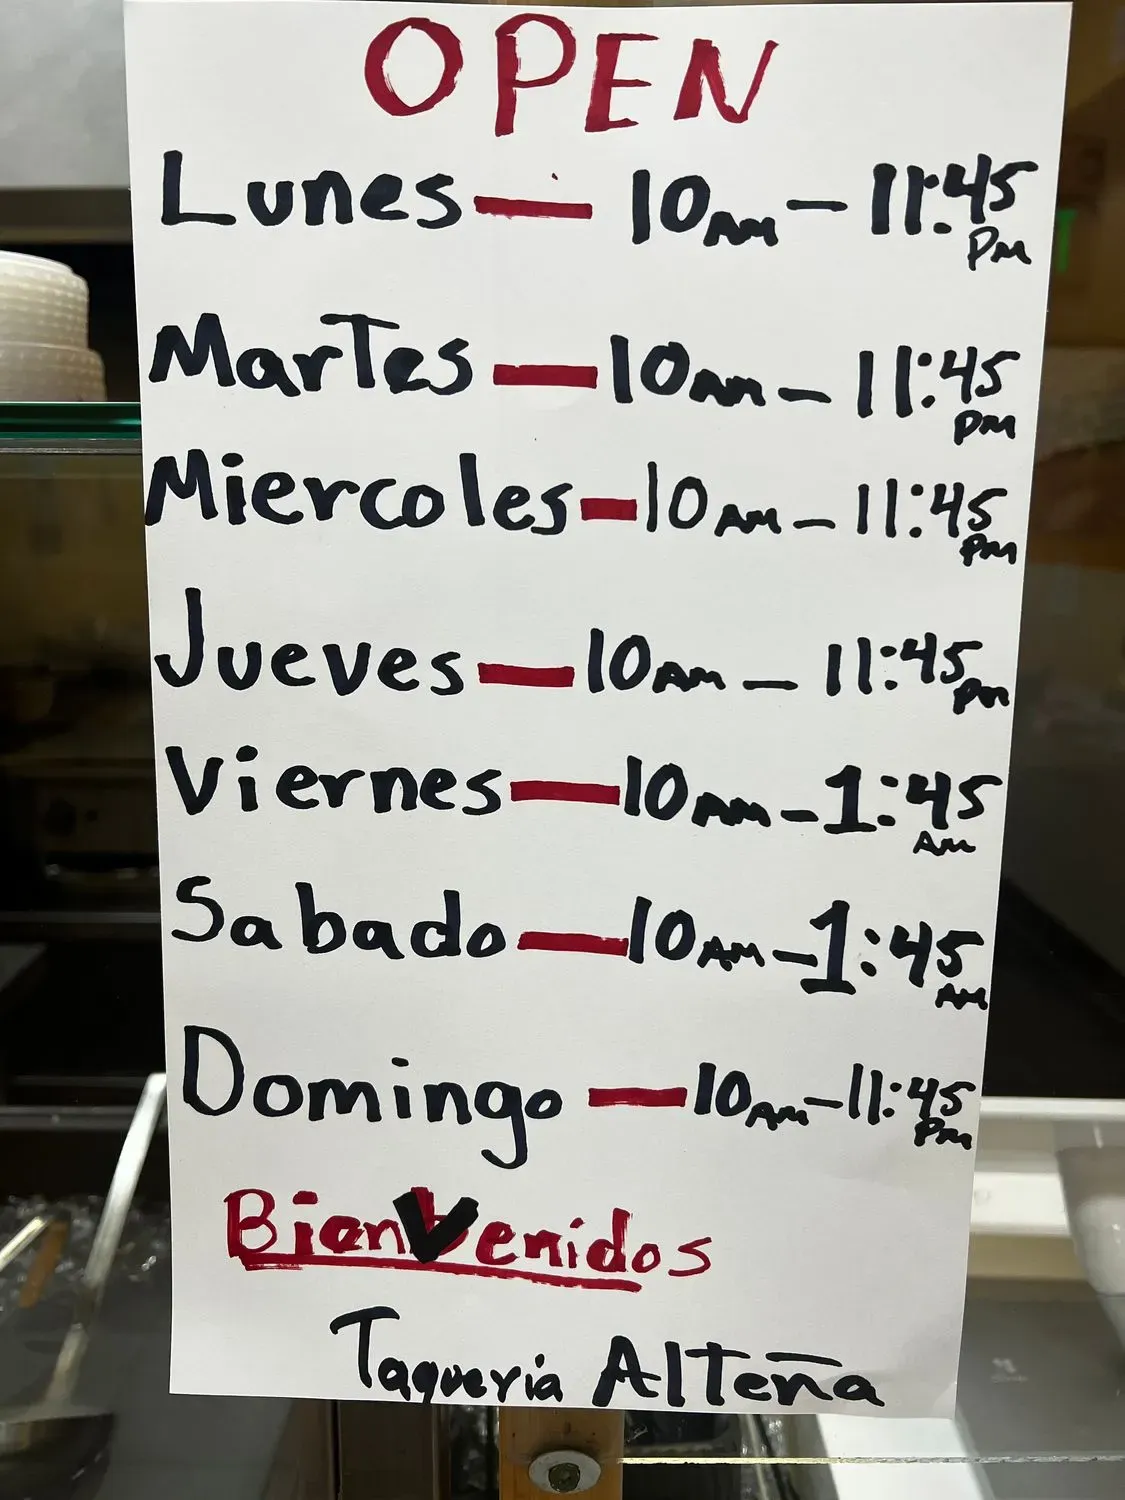 OPEN
Lunes — 10AM - 11:45 PM
Martes — 10AM - 11:45 PM
Miercoles — 10AM - 11:45 PM
Jueves — 10AM - 11:45 PM
Viernes — 10AM - 1:45 AM
Sabado — 10AM - 1:45 AM
Domingo — 10AM - 11:45 PM
BienVenidos
Taqueria Alteña